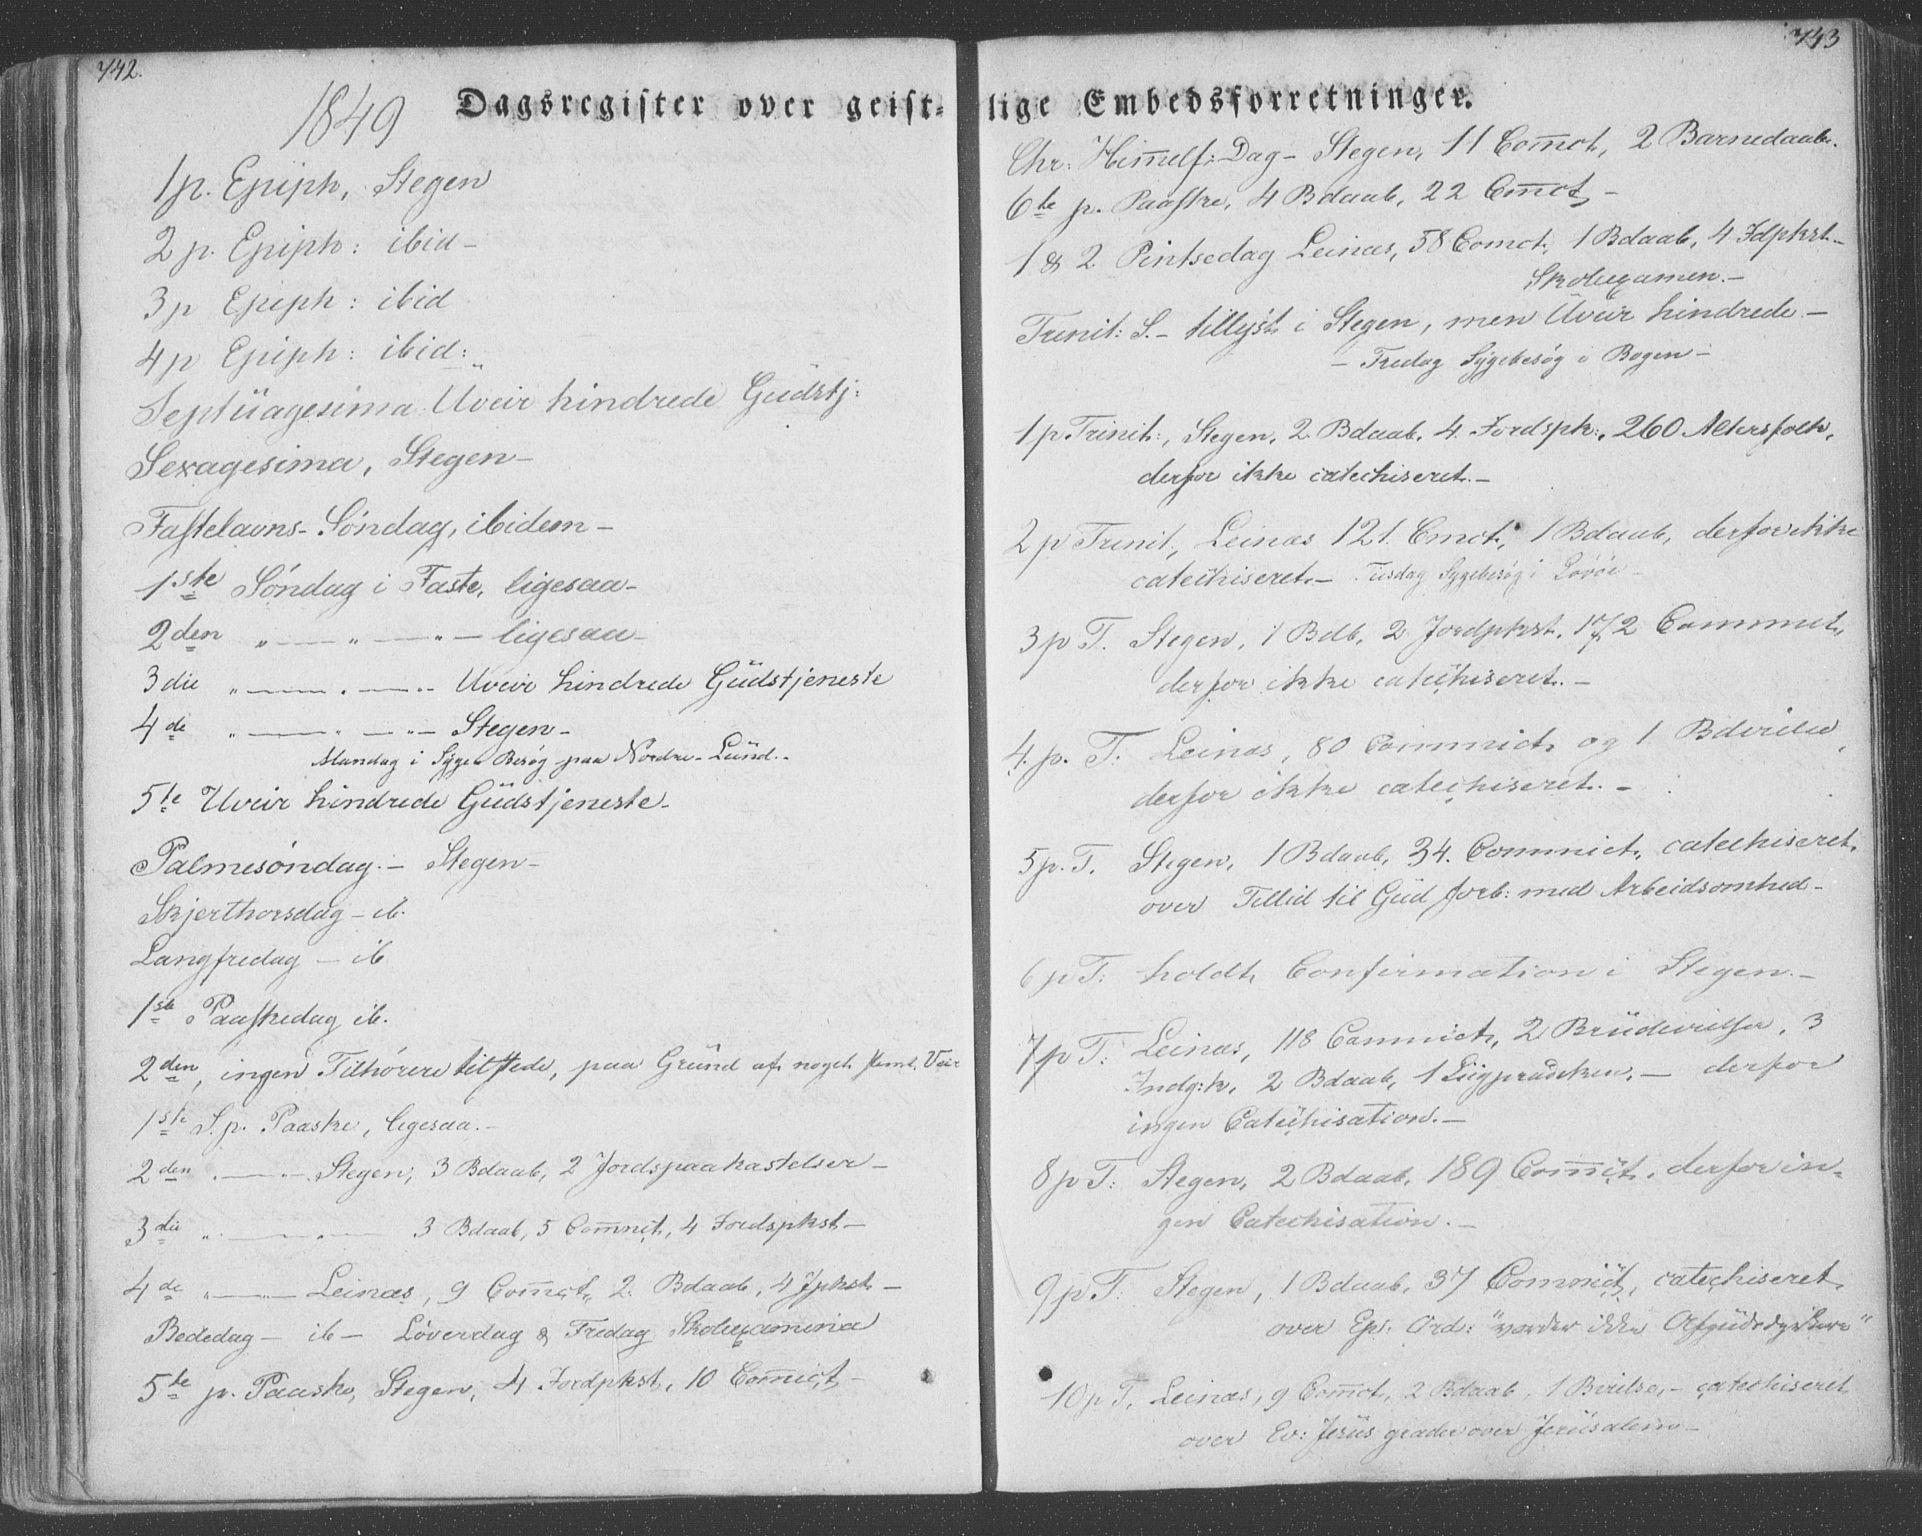 742.
1849
Dagsregister over geist-
1 p. Epiph, Stegen
2 p. Epiph: ibid -
3 p Epiph: ibid
4 p Epiph: ibid:
Septuagesima Uveir hindrede Gudstj:
Sexagesima, Stegen -
Fastelavns-Søndag, ibidem -
1ste Søndag i Faste, ligesaa -
2den " — " — " — ligesaa -
3die " — " — " Uveir hindrede Gudstjeneste
4de " — " — " — Stegen -
Mandag i Syge Besøg paa Nordre-Lund.-
5te Uveir hindrede Gudstjeneste -
Palmesøndag. - Stegen -
Skjerthorsdag - ib.
Langfredag - ib
1ste Paaskedag ib.
2den, ingen Tilhørere tilstede, paa Grund af noget slemt Veir
1ste S. p. Paaske, ligesaa. -
2den " — " Stegen, 3 Bdaab, 2 Jordspaakastelser -
3die " — " — 3 Bdaab, 5 Comnict, 4 Jordspkst -
4de " — " — Leinæs, 9 Comct, 2 Bdaab, 4 Jpkst -
Bededag - ib - Løverdag & Fredag Skolexamina
5te p. Paaske, Stegen, 4 Jordpkst, 10 Comict -
743
lige Embedsforretninger.
Chr: Himmelf: Dag - Stegen, 11 Comct, 2 Barnedaab.
6te p. Paaske, 4 Bdaab, 22 Cmct -
1 & 2 Pintsedag Leinæs, 58 Comct, 1 Bdaab, 4 Jdpkst -
Skolexamen. -
Trinit: S. - tillyst i Stegen, men Uveir hindrede -
- Fredag Sygebesøg i Bogen -
1 p Trinit:, Stegen, 2 Bdaab, 4 Jordspk:, 260 Altersfolk,
derfor ikke catechiseret. -
2 p Trinit, Leinæs 121 Cmct, 1 Bdaab, derfor ikke
catechiseret. - Tirsdag Sygebesøg i Løvøe -
3 p T. Stegen, 1 Bdb, 2 Jordpkst, 172 Commct,
derfor ikke catechiseret. -
4. p. T. Leinæs, 80 Commict og 1 Bdvielse,
derfor ikke catechiseret. -
5 p. T. Stegen, 1 Bdaab, 34. Commict, catechiseret
over Tillid til Gud forb: med Arbeidsomhed -
6 p T: holdt Confirmation i Stegen. -
7 p T: Leinæs, 118 Commict, 2 Brudevielser, 3
Indg:k, 2 Bdaab, 1 Liigprædiken, - derfor
ingen Catechisation. -
8 p T: Stegen, 2 Bdaab, 189 Comict, derfor in-
gen Catechisation. -
9 p T: Stegen, 1 Bdaab, 37 Commict, catechiseret
over Ep: Ord: "vorder ikke Afgudsdyrkere"
10 p T, Leinæs, 9 Comct, 2 Bdaab, 1 Bvielse, - catechiseret
over Ev: Jesus græder over Jerusalem -